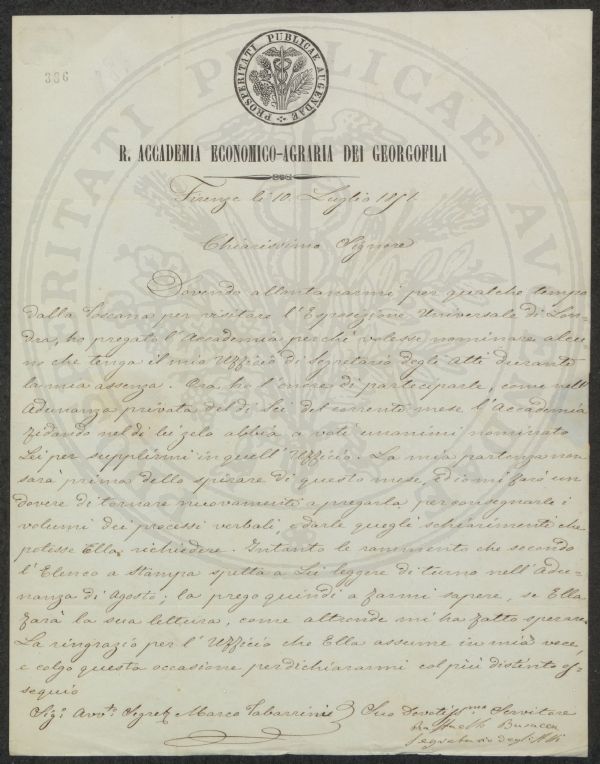 336
PROSPERITATI PUBLICAE AUGENDAE
R. ACCADEMIA ECONOMICO-AGRARIA DEI GEORGOFILI
Firenze li 10. Luglio 1851.
Chiarissimo Signore
Dovendo allontanarmi per qualche tempo
dalla Toscana per visitare l'Esposizione Universale di Lon-
dra, ho pregato l'Accademia perchè volesse nominare alcu-
no che tenga il mio Uffizio di Segretario degli Atti durante
la mia assenza. Ora, ho l'onore di parteciparle, come nell'
Adunanza privata del dì sei del corrente mese l'Accademia
fidando nel di lei zelo abbia a voti unanimi nominato
Lei per supplirmi in quell'Uffizio. La mia partenza non
sarà prima dello spirare di questo mese, ed io mi farò un
dovere di tornare nuovamente a pregarla, per consegnarle i
volumi dei processi verbali, e darle quegli schiarimenti che
potesse Ella richiedere. Intanto le rammento che secondo
l'Elenco a stampa spetta a Lei leggere di turno nell'Adu-
nanza di Agosto; la prego quindi a farmi sapere, se Ella
farà la sua lettura, come altronde mi ha fatto sperare.
La ringrazio per l'Uffizio che Ella assume in mia vece,
e colgo questa occasione per dichiararmi col più distinto os-
sequio
Sigr. Avvo. Segret. Marco Tabarrini Suo Devotissmo Servitore
Raffaello Busacca
Segretario degli Atti